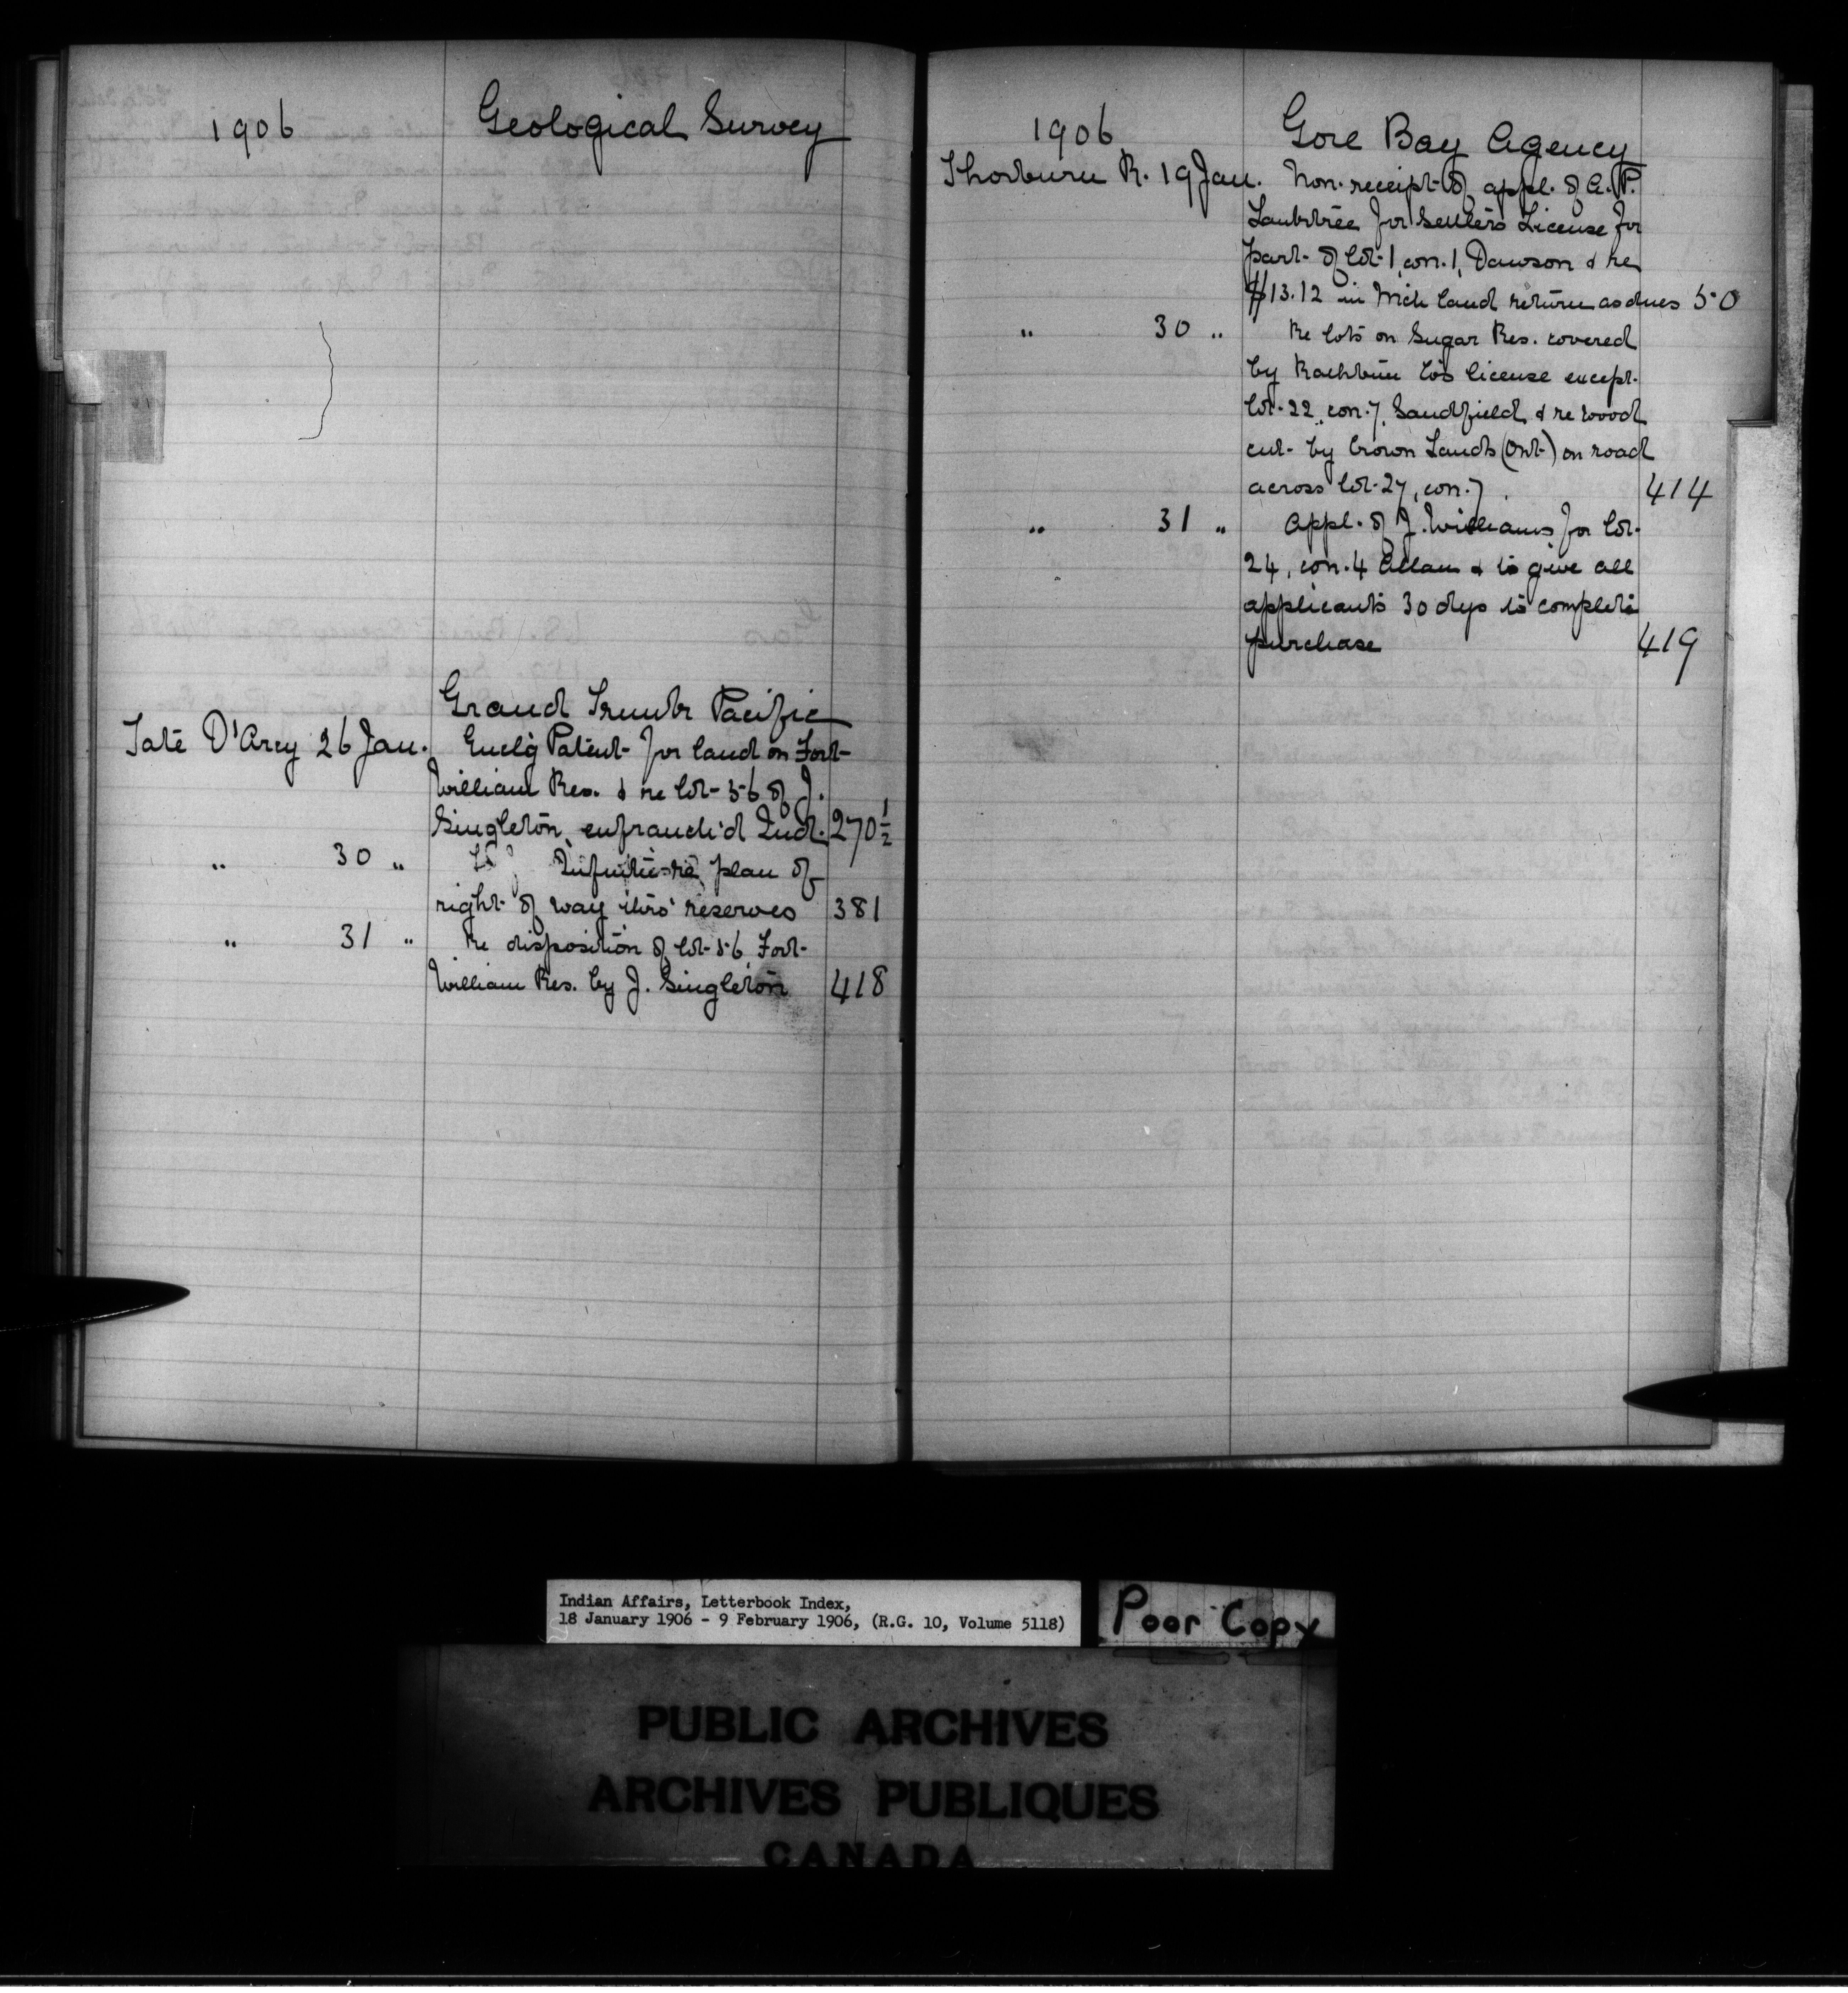 1906 Geological Survey
Grand Trunk Pacific
Tate D'Arcy 26 Jan. Encl'g Patent for land on Fort
William Res. & re lot 56 of J.
Singleton, enfranch'd Ind. 270½
" 30 " plan of
right of way thro' reserves 381
" 31 " Re disposition of lot 56, Fort
William Res. by J. Singleton 418
1906 Gore Bay Agency
Thorburn R. 19 Jan. Non-receipt of appl. of A. P.
for Settlers License for
part of lot 1, con. 1, Dawson & re
$13.12 in land return as dues 50
" 30 " Re lots on Sugar Res. covered
by Rathbun Co's license except
lot 22, con. 7, Sandfield & re wood
cut by Crown Lands (Ont) on road
across lot 27, con. 7. 414
" 31 " Appl. of J. Williams for lot
24, con. 4 Allan & to give all
applicants 30 dys to complete
purchase 419
Indian Affairs, Letterbook Index,
18 January 1906 - 9 February 1906, (R.G. 10, Volume 5118)
Poor Copy
PUBLIC ARCHIVES
ARCHIVES PUBLIQUES
CANADA